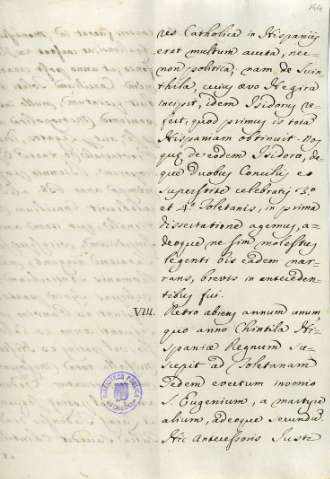 res Catholica in Hispaniis
erat multum aucta, nec
non politica; nam de Suin
thila, cuius evo Hegira
incipit, idem Isidorus re
fert, quod primus is tota
Hispaniam obtinuit.
de eodem Isidoro, de
que duobus Concilis eo
superstite celebratis 3.º
et 4.º Toletanis, in prima
dissertatione agemus, a-
deoque ne sim molestus
legenti bis eadem nar-
rans, brevis in anteceden-
tibus fui.
VIII. Retro abiens annum unum
quo anno Chintila His-
paniæ Regnum sus-
cepit ad Toletanam
Sedem evectum invenio
S. Eugenium, a martyre
alium, adeoque secundum.
Hic Antecessoris Juste